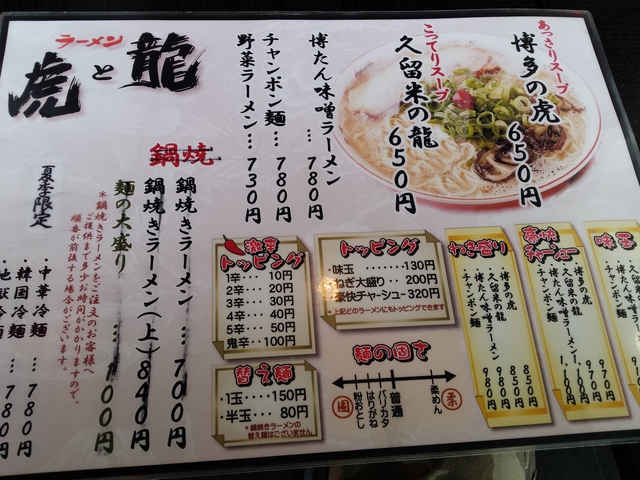 ラーメン
龍と虎
あっさりスープ
博多の虎 650円
こってりスープ
久留米の龍 650円
博たん味噌ラーメン … 780円
チャンポン麺 … 780円
野菜ラーメン … 730円
鍋焼
鍋焼きラーメン … 700円
鍋焼きラーメン(上) … 840円
麺の大盛り … 100円
*鍋焼きラーメンをご注文のお客様へ
ご提供まで多少お時間がかかりますので、
順番が前後する場合がございます。
夏季限定
・中華冷麺 … 780円
・韓国冷麺 … 780円
激辛
トッピング
1辛…… 10円
2辛…… 20円
3辛…… 30円
4辛…… 40円
5辛…… 50円
鬼辛…100円
替え麺
・1玉……150円
・半玉…… 80円
*鍋焼きラーメンの
替え麺はございません
トッピング
・味玉………………130円
・ねぎ大盛り……200円
・豪快チャーシュー…320円
*上記どのラーメンにもトッピングできます
麺の固さ
固
粉おとし
はりがね
バリカタ
普通
柔めん
柔
ねぎ盛り
・博多の虎 850円
・久留米の龍 850円
・博たん味噌ラーメン 980円
・チャンポン麺 980円
豪快
チャーシュー
・博多の虎 970円
・久留米の龍 970円
・博たん味噌ラーメン 1,100円
・チャンポン麺 1,100円
味玉